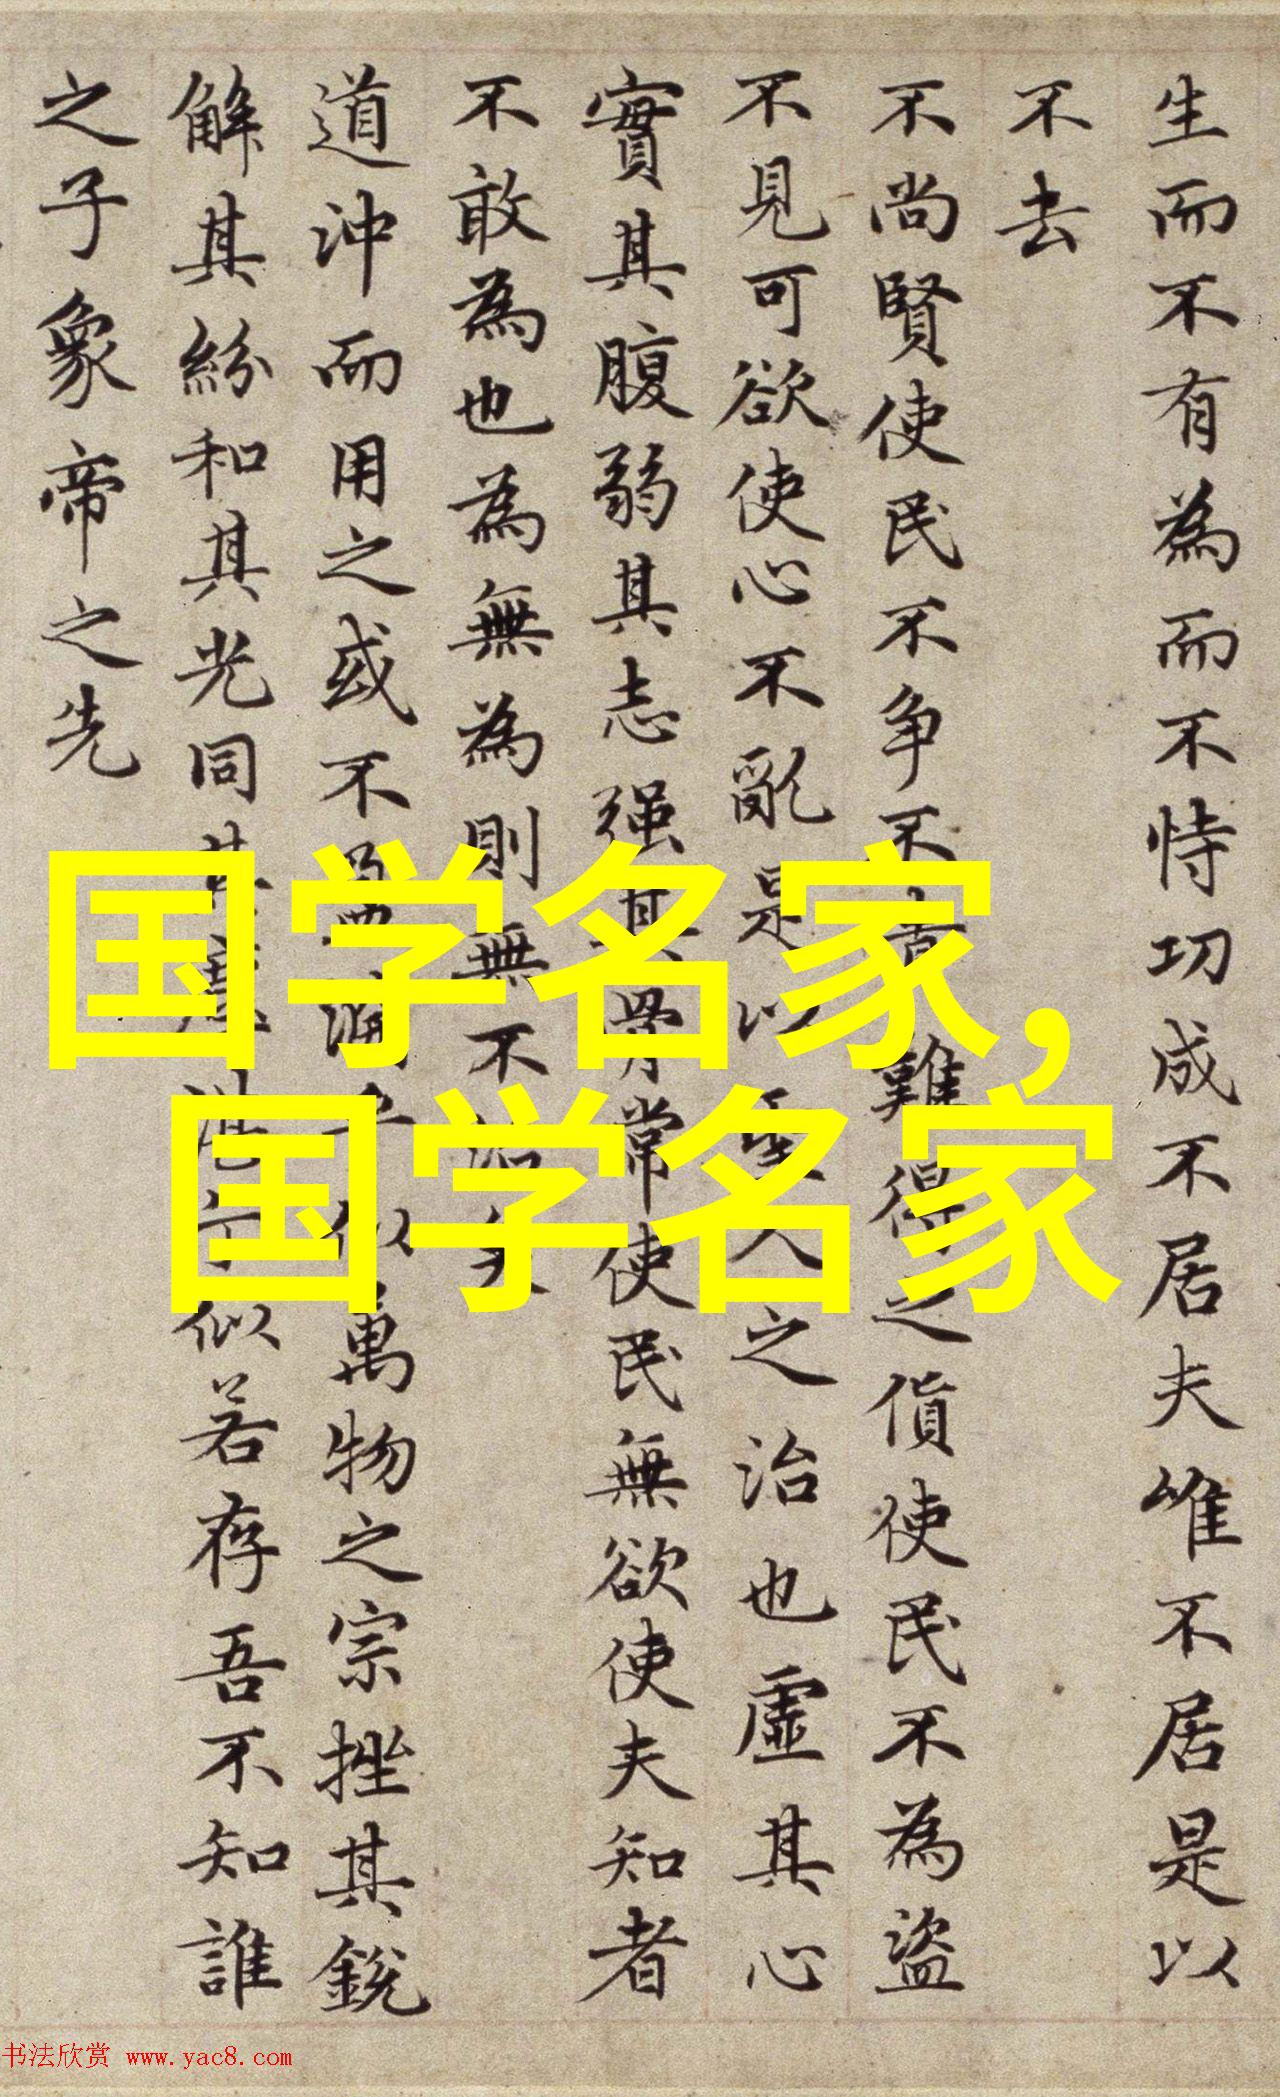 生而不有為而不恃功成不居夫唯不居是以
不去
不尚賢使民不争不貴難得之貨使民不為盜
不見可欲使心不亂是以聖人之治也虛其心
實其腹弱其志强其骨常使民無欲使夫知者
不敢為也為無為則無不治矣
道沖而用之或不盈淵乎似萬物之宗挫其銳
解其紛和其光同其塵湛乎似若存吾不知誰
之子象帝之先
国学名家,
国学名家
书法欣赏 www.yac8.com